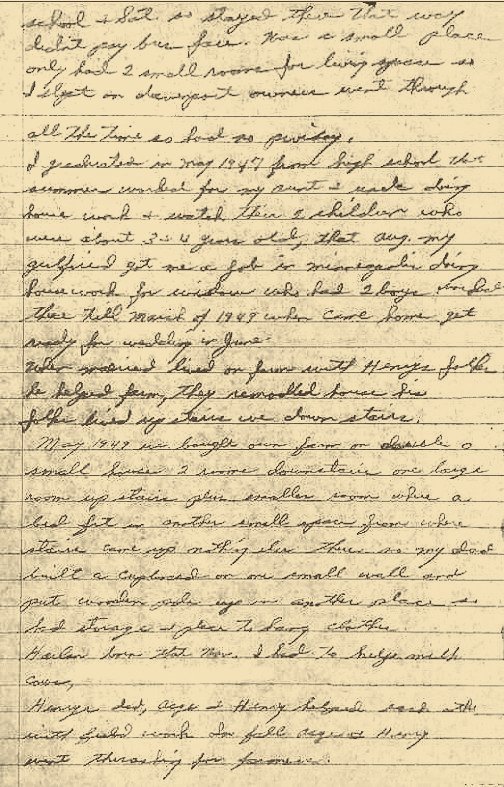 school & Sat. so stayed there that way
didn't pay bus fare. Was a small place
only had 2 small rooms for living space so
I slept on davenport owners went through
all the time so had no privacy.
I graduated in May 1947 from high school that
summer worked for my aunt & uncle doing
house work & watch their 2 children who
were about 3 & 4 years old, that Aug. my
girlfriend got me a job in Minneapolis doing
housework for widow who had 2 boys
there till March of 1949 when came home get
ready for wedding in June.
When married lived on farm with Henrys folks
he helped farm, they remodled house his
folks lived up stairs we down stairs.
May 1949 we bought own farm on a
small house 2 rooms downstairs one large
room up stairs plus smaller room where a
bed fit in another small space from where
stairs came up nothing else there so my dad
built a cupboard on one small wall and
put wooden pole up in another place so
had storage & place to hang clothes
Harlan born that Nov. I had to help milk
cows,
Henrys dad, & Henry helped each other
with field work In fall & Henry
went thrashing for farmers.